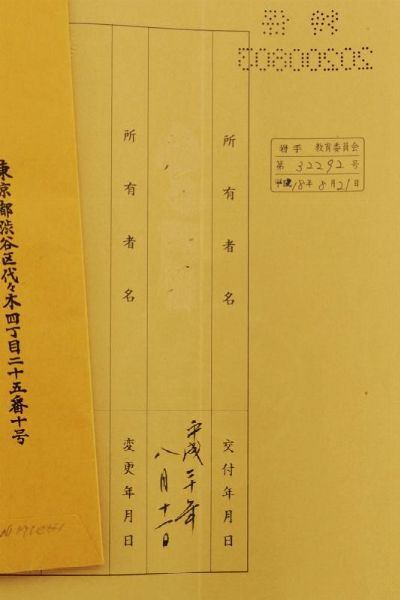 岩手 教育委員会
第 32292 号
18年 8月21日
所有者名
交付年月日
平成二十年
八月十一日
所有者名
変更年月日
東京都渋谷区代々木四丁目二十五番十号